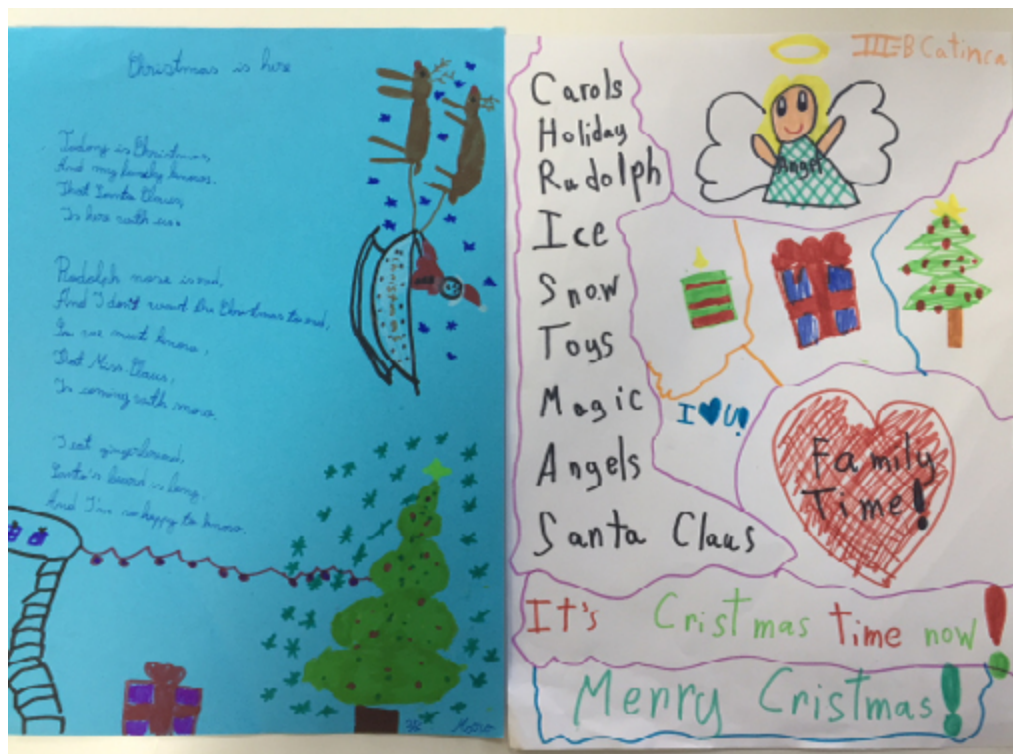 Christmas is here
Today is Christmas,
And my family knows.
That Santa Claus,
Is here with us.
Rudolph nose is red,
And I don't want the Christmas to end,
You we must know,
That Miss Claus,
Is coming with snow.
I eat gingerbread,
Santa's beard is long,
And I'm so happy to know.
III B Catinca
Angel
Carols
Holiday
Rudolph
Ice
Snow
Toys
Magic
Angels
Santa Claus
I ♥ U!
Family
Time!
It's Cristmas time now!
Merry Cristmas!